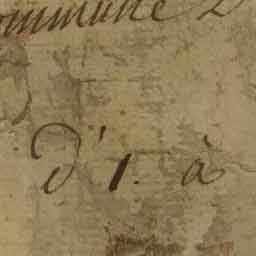 ommune 2
d'1. à